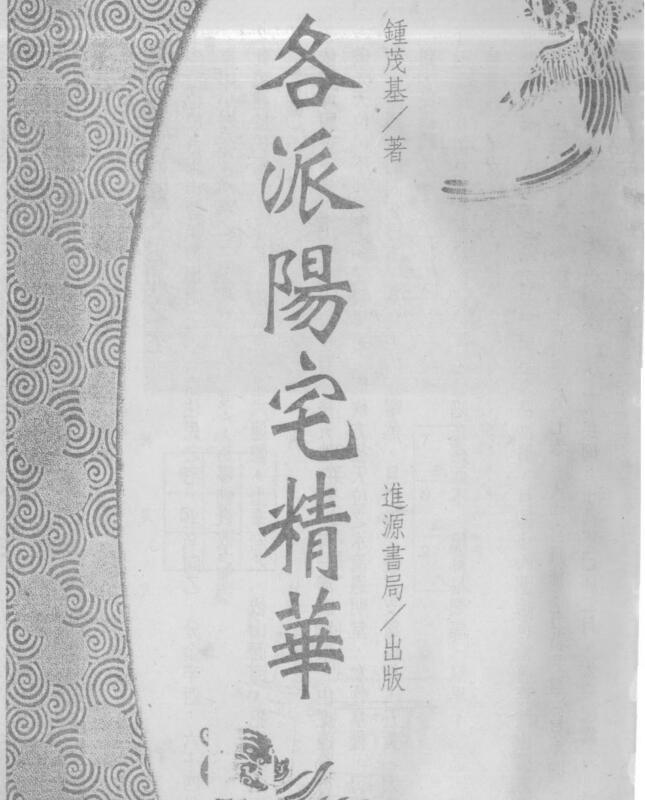 鍾茂基/著
各派陽宅精華
進源書局/出版